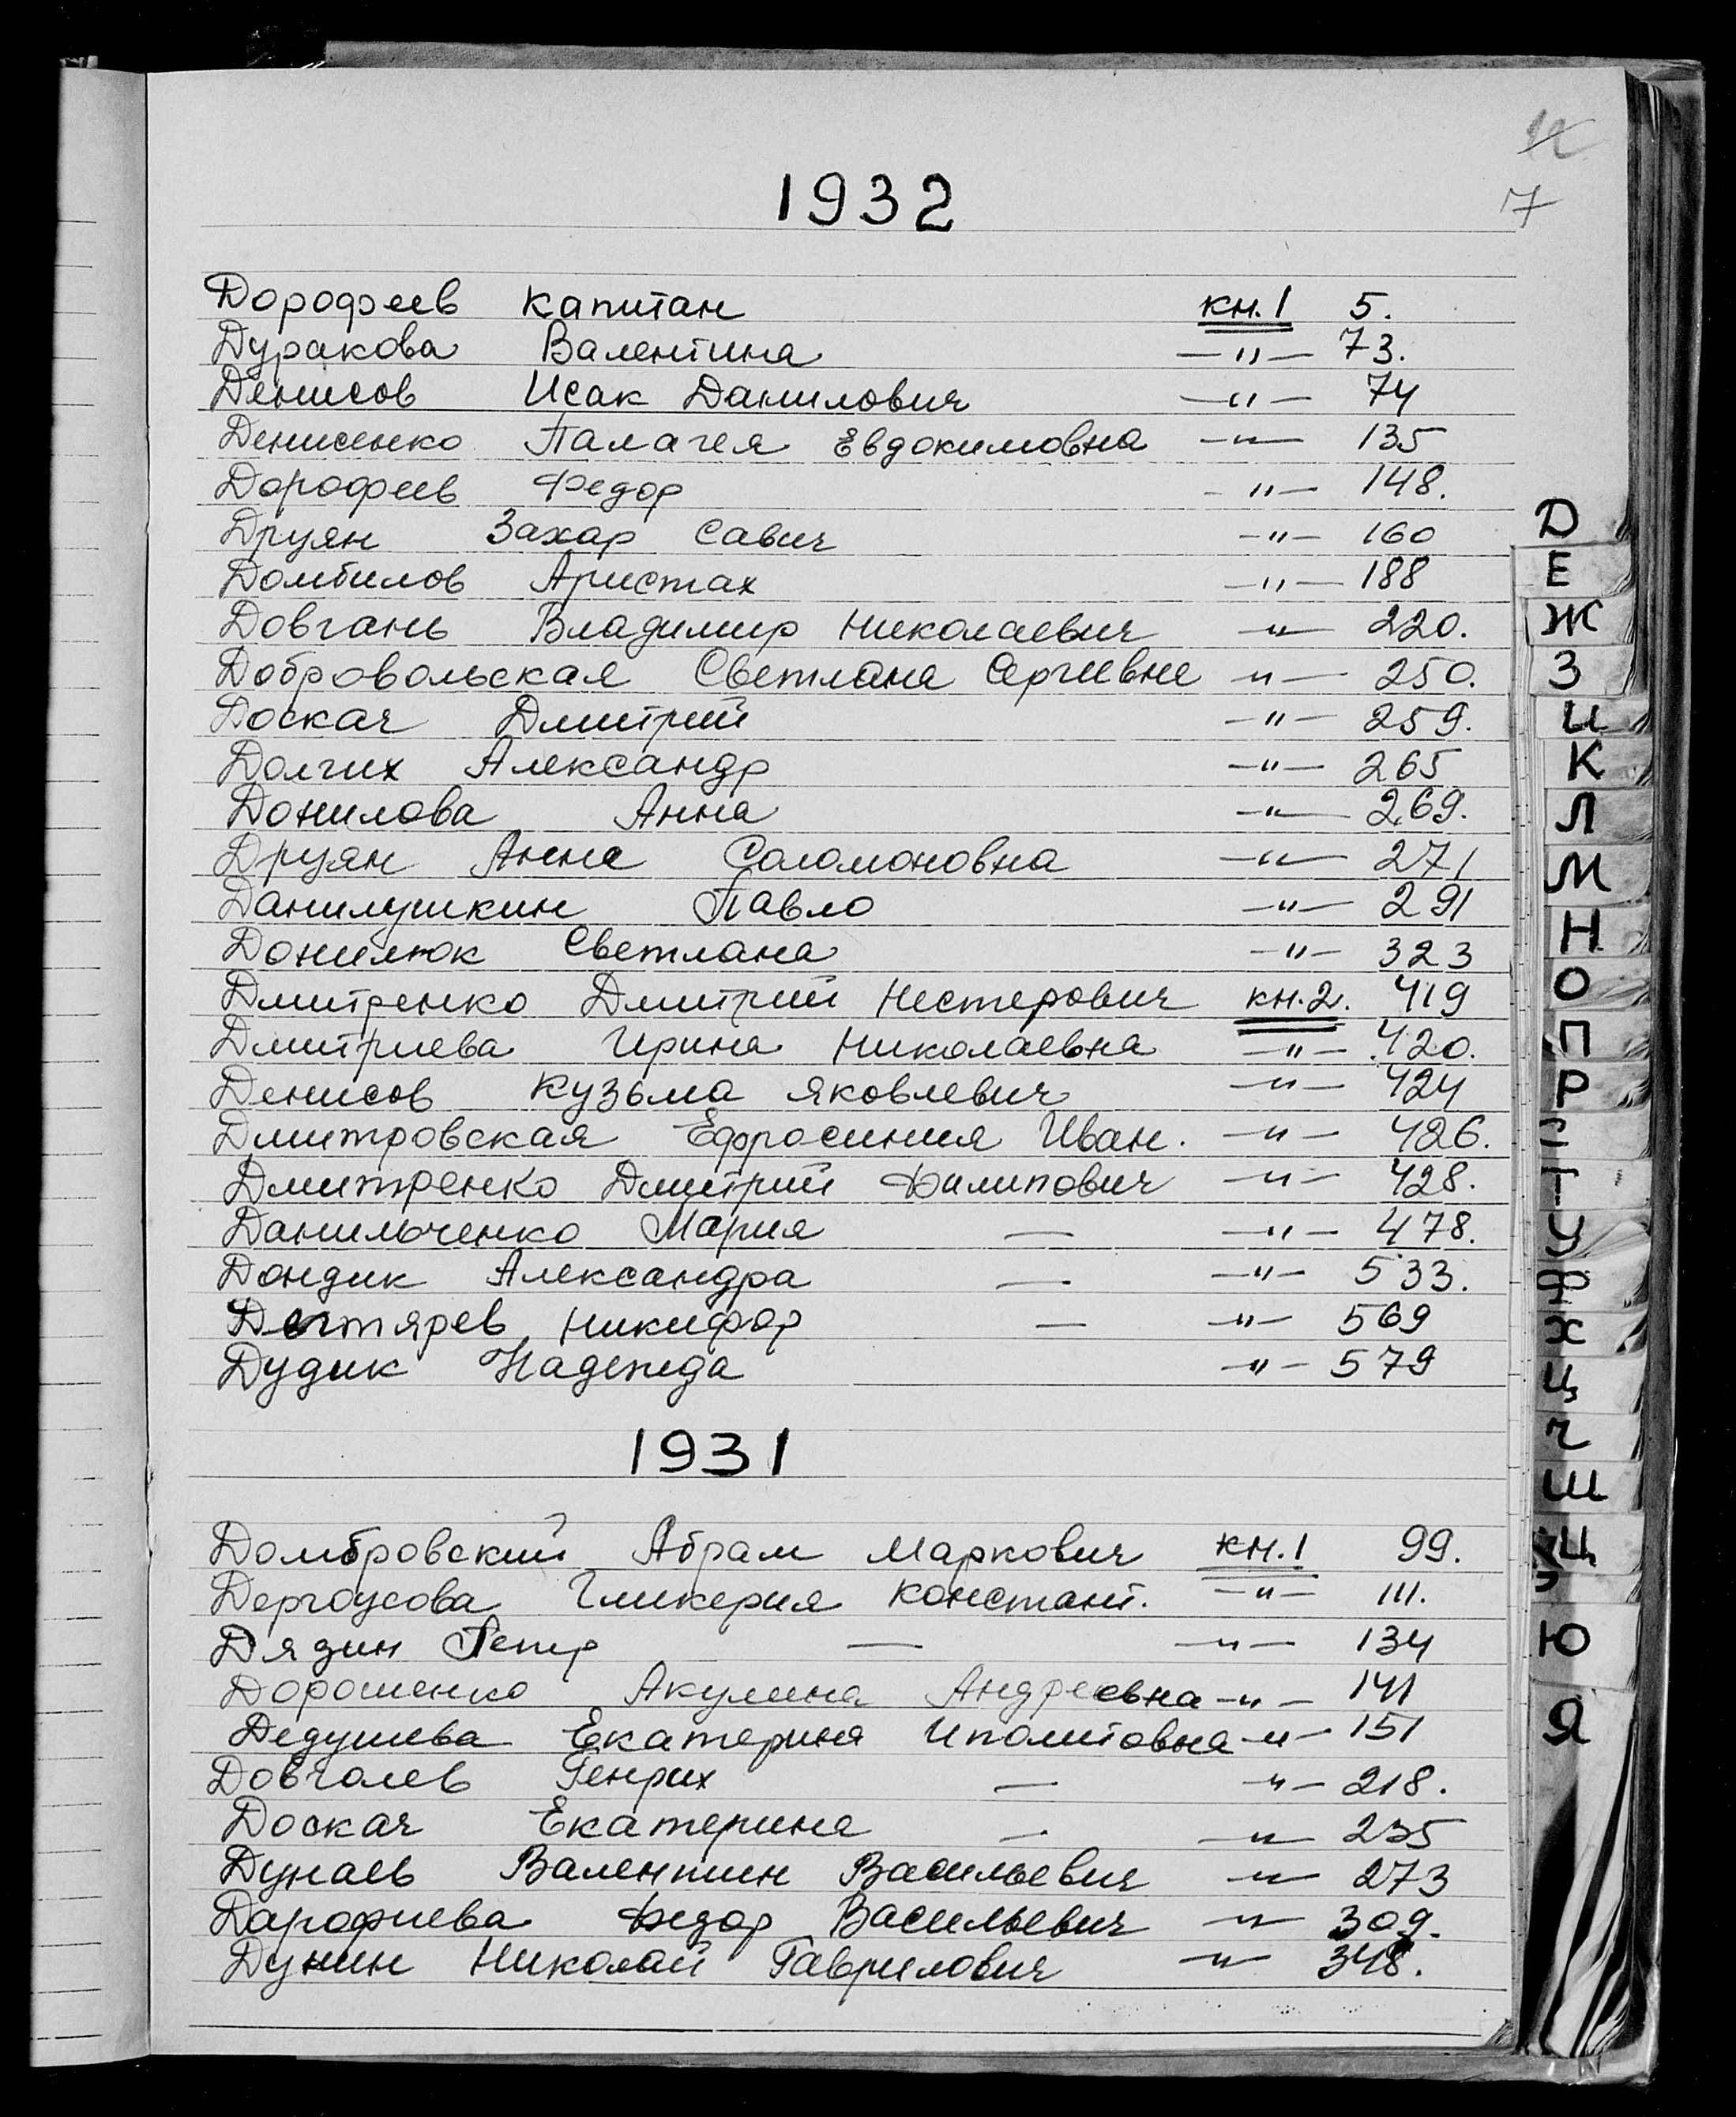 12
7
1932
Дорофеев Капитан кн.1 5.
Дуракова Валентина —"— 73.
Денисов Исак Данилович —"— 74
Денисенко Палагея Евдокимовна —"— 135
Дорофеев Федор —"— 148.
Друян Захар Савич —"— 160
Домбилов Аристах —"— 188
Довгань Владимир Николаевич —"— 220.
Добровольская Светлана Сергиевна —"— 250.
Доскач Дмитрий —"— 259.
Долгих Александр —"— 265
Донилова Анна —"— 269.
Друян Анна Соломоновна —"— 271
Данилушкин Павло —"— 291
Донилюк Светлана —"— 323
Дмитренко Дмитрий Нестерович кн.2. 419
Дмитриева Ирина Николаевна —"— 420.
Денисов Кузьма Яковлевич —"— 424
Дмитровская Ефросиния Иван. —"— 426.
Дмитренко Дмитрий Филипович —"— 428.
Данильченко Мария — —"— 478.
Дондик Александра — —"— 533.
Дегтярев Никифор — —"— 569
Дудик Надежда —"— 579
1931
Домбровский Абрам Маркович кн.1 99.
Дергоусова Гликерия Констант. —"— 111.
Дязин Петр — —"— 134
Дорошенко Акулина Андреевна —"— 141
Дедушева Екатерина Иполитовна —"— 151
Довголев Генрих — —"— 218.
Доскач Екатерина — —"— 235
Дунаев Валентин Васильевич —"— 273
Дарофиева Федор Васильевич —"— 309.
Дунин Николай Гаврилович —"— 348.
Д
Е
Ж
З
И
К
Л
М
Н
О
П
Р
Т
У
Ф
Х
Ц
Ч
Ш
Щ
Ю
Я